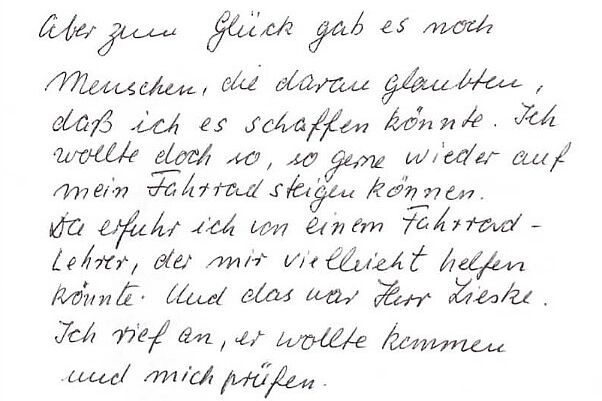 Aber zum Glück gab es noch
Menschen, die daran glaubten,
daß ich es schaffen könnte. Ich
wollte doch so, so gerne wieder auf
mein Fahrrad steigen können.
Da erfuhr ich von einem Fahrrad-
Lehrer, der mir vielleicht helfen
könnte. Und das war Herr Lieske.
Ich rief an, er wollte kommen
und mich prüfen.